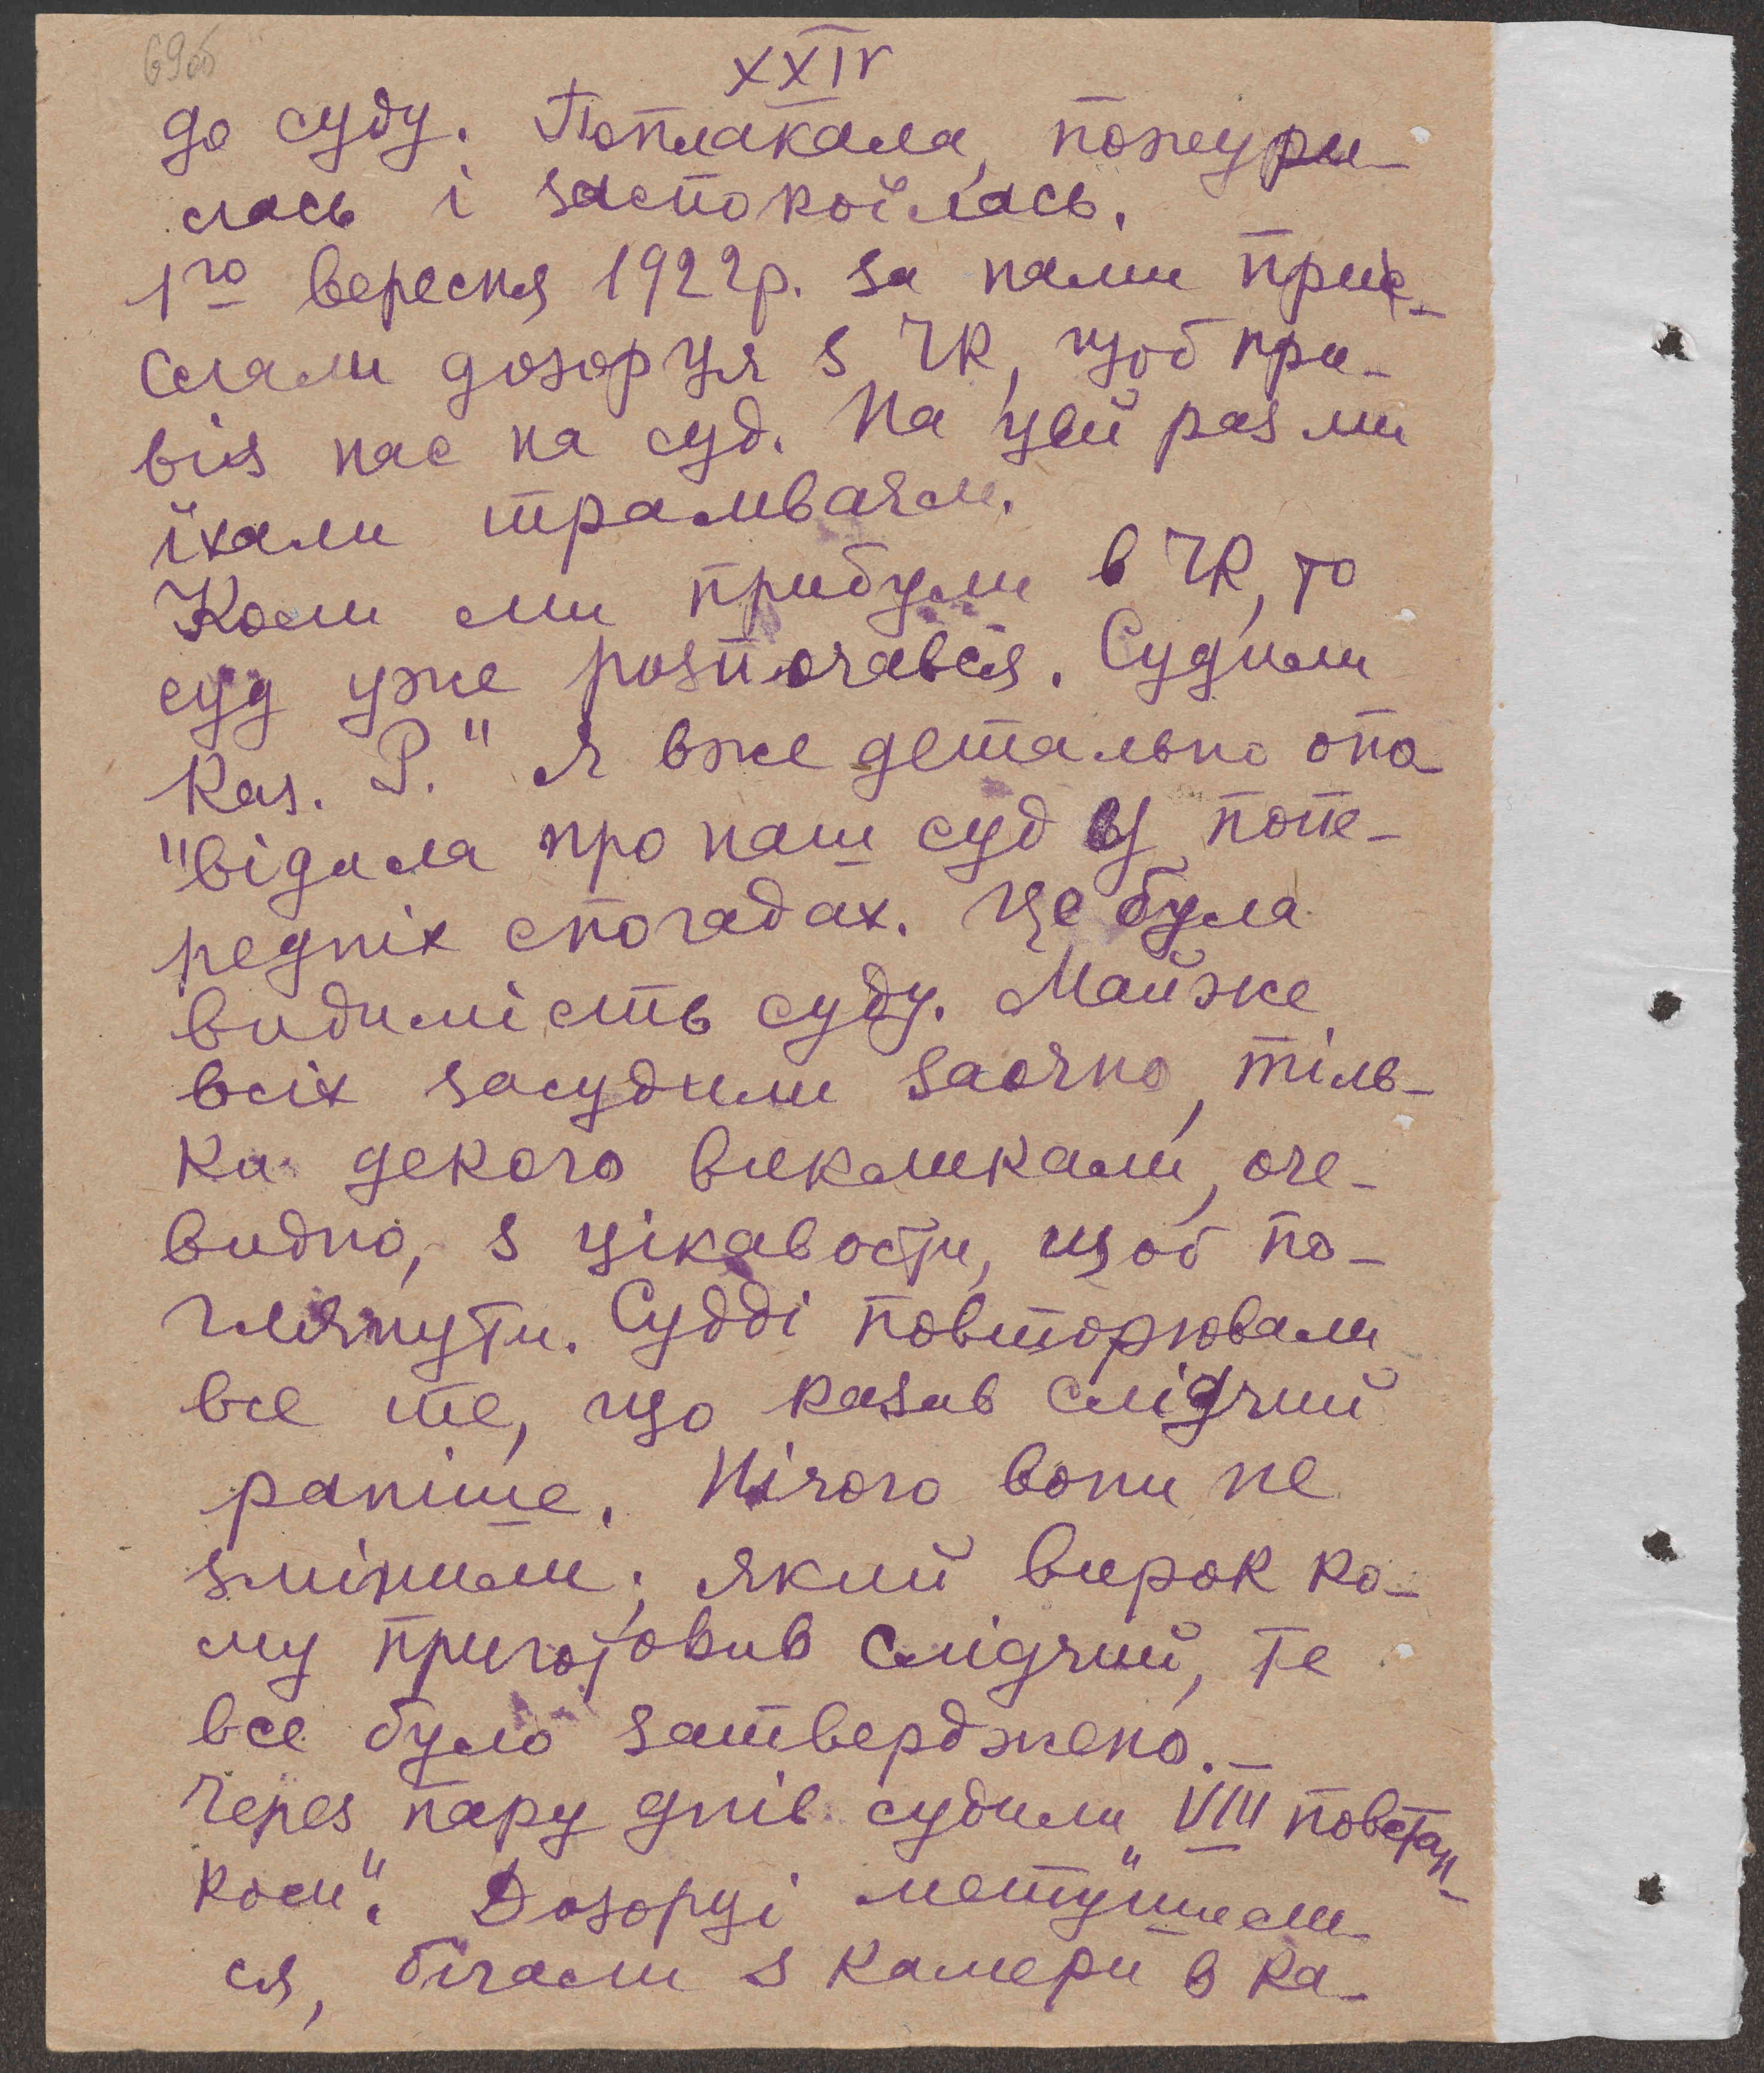 69об
XXIV
до суду. Поплакала, пожури-
лась і заспокоїлась.
1го вересня 1922р. за нами при-
слали дозорця з ЧК, щоб при-
віз нас на суд. На цей раз ми
їхали трамваєм.
Коли ми прибули в ЧК, то
суд уже розпочався. Судили
Каз. Р." Я вже детально опо
"відала про наш суд у попе-
редніх спогадах. Це була
видимість суду. Майже
всіх засудили заочно, тіль-
ки декого викликали, оче-
видно, з цікавости, щоб по-
глянути. Судді повторювали
все те, що казав слідчий
раніше. Нічого вони не
змінили; який вирок ко-
му приготовив слідчий, те
все було затверджено.-
Через пару днів судили "VIII повстан-
ком". Дозорці метушили-
ся, бігали з камери в ка-